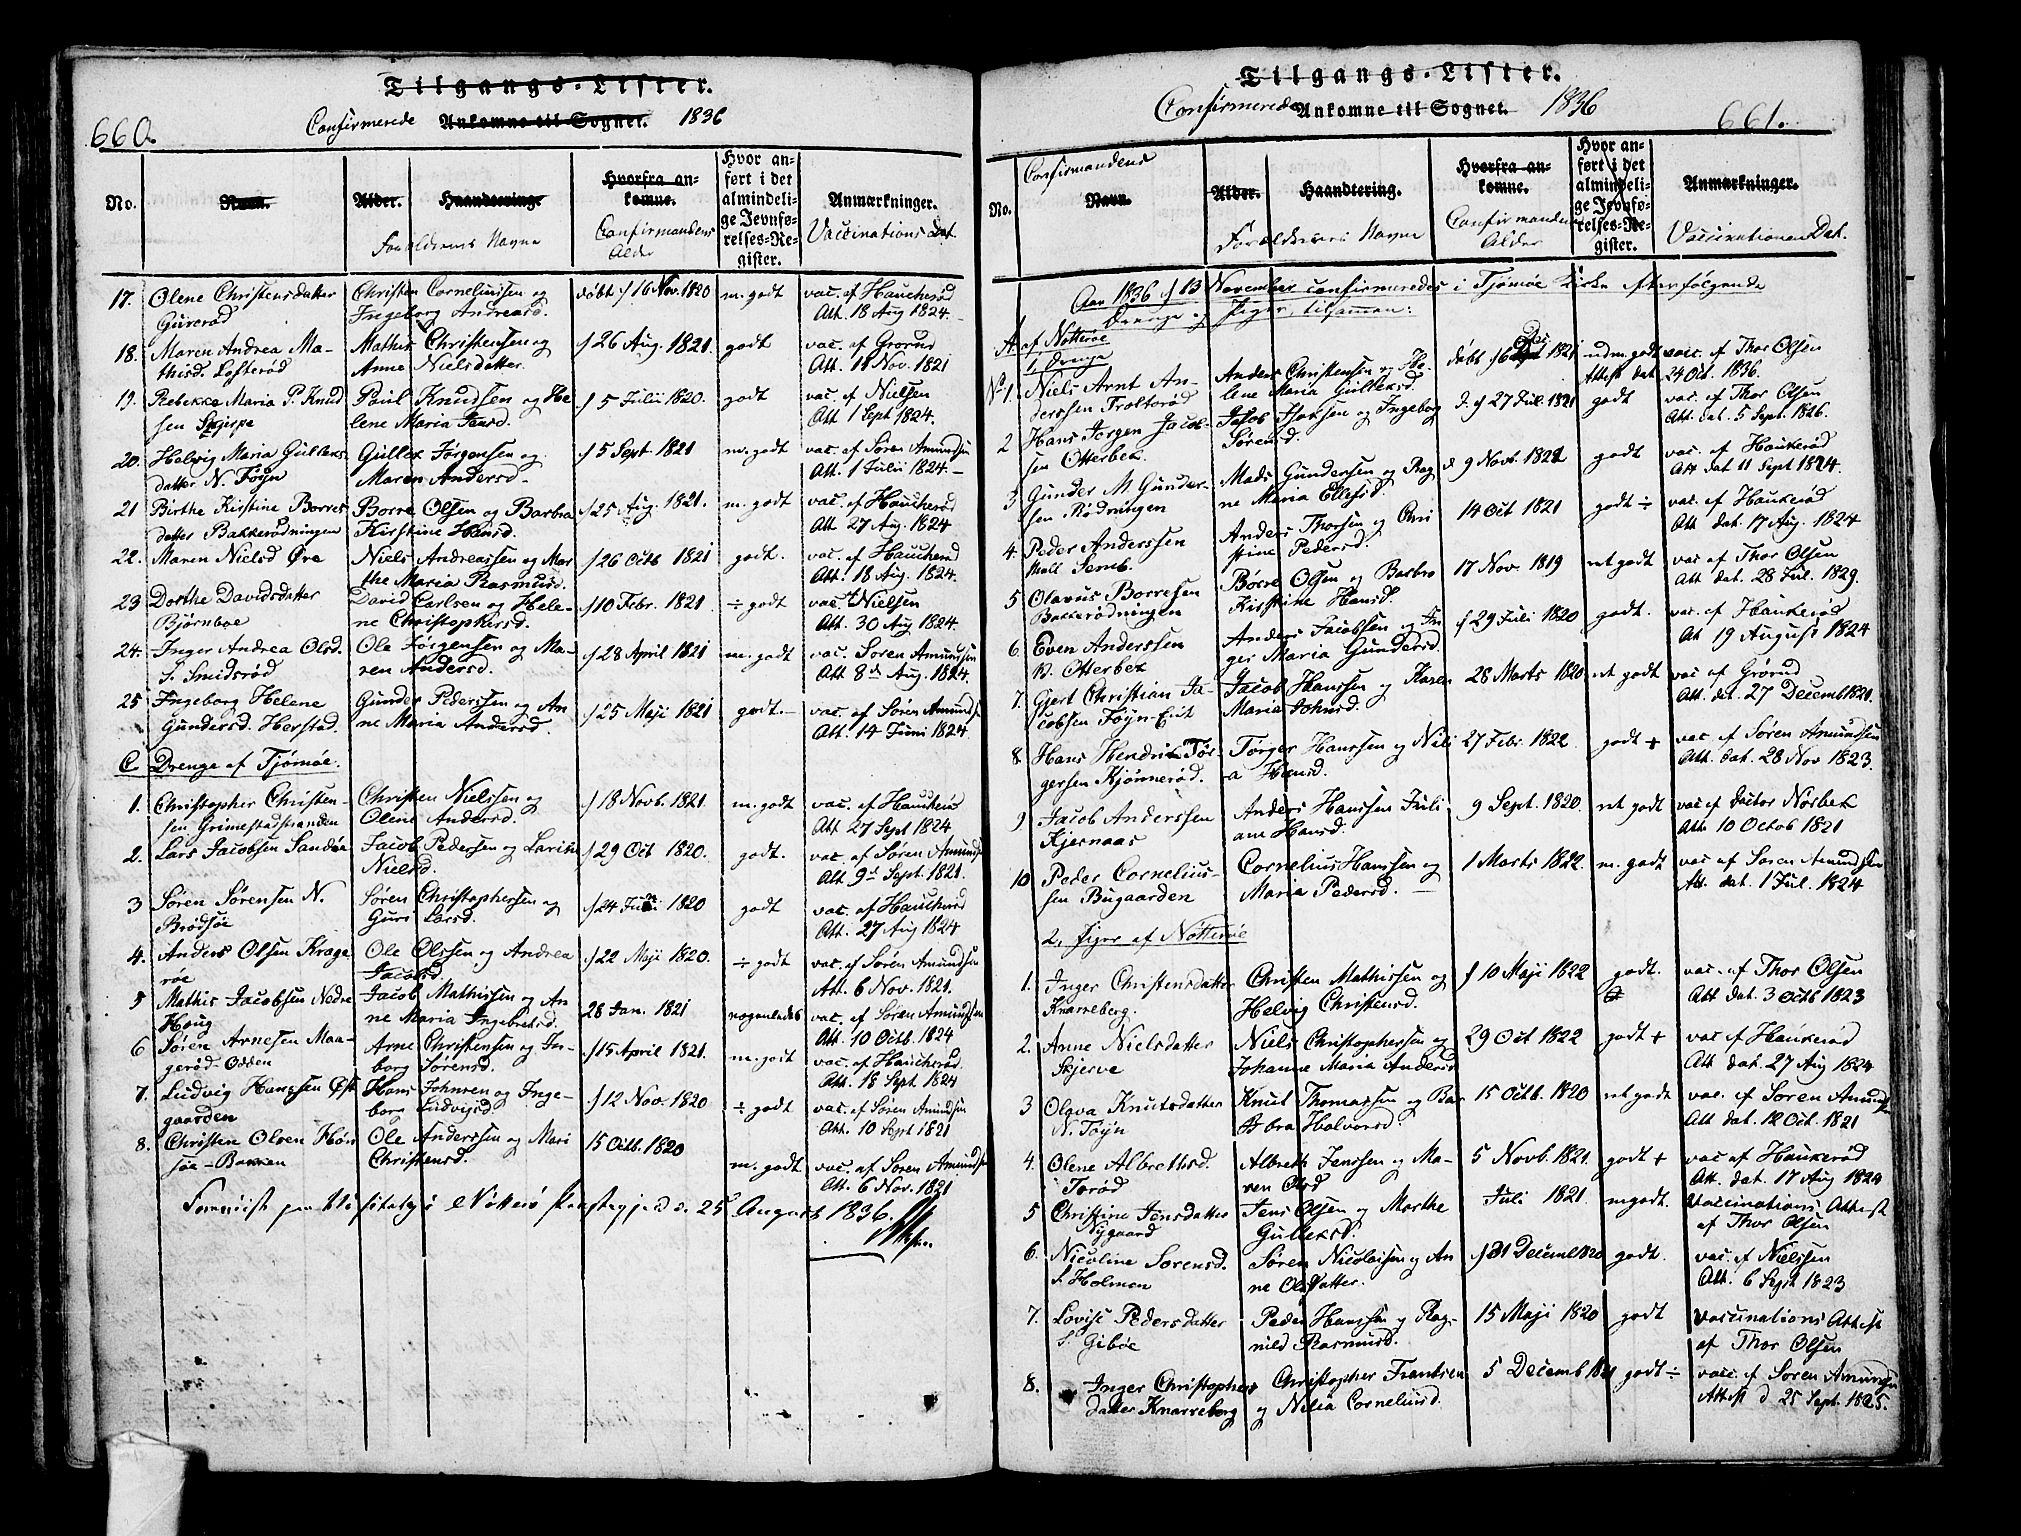 Tilgangs-Lister.
660. Confirmerede Ankomne til Sognet. 1836
No. Navn. Alder. Haandtering. Hvorfra ankomne. Hvor anført i det almindelige Jevnførelses-Register. Anmærkninger.
Forældrenes Navne Confirmandens Alder Vaccinations Dat.
17. Olene Christensdatter Christen Cornelius­sen og døbt 16 Nov. 1820 m. godt vac. af Haucherød
Gurerød Ingeborg Andreasd. Att. 18 Aug 1824.
18. Maren Andrea Ma- Mathis Christensen og 26 Aug. 1821. godt vac. af Grorud
thisd. Lofterød Anne Nielsdatter Att. 11 Nov. 1821
19. Rebekke Maria P. Knud Paul Knudsen og He 5 Julii 1820. godt vac. af Nielsen
sen Skjerpe lene Maria Att. 1 Sept 1824.
20. Helvig Maria Gulleks Gullek Jørgensen og 5 Sept. 1821 m. godt vac. af Søren Amundsen
datter N. Føyn Maren Andersd. Att. 1 Julii 1824.
21 Birthe Kirstine Borres Borre Olsen og Barbra 25 Aug. 1821. m. godt vac. af Haucherød
datter Bakkerødningen Kirstine Hansd. Att. 27 Aug. 1824
22. Maren Nielsd Øre Niels Andreassen og Mar 26 Octb 1821 godt. vac. af Haucherød
the Maria Rasmusd. Att. 18 Aug. 1824.
23 Dorthe Davidsdatter David Carlsen og Hele- 10 Febr. 1821 ÷ godt vac. af Nielsen
Bjørnboe ne Christophersd. Att. 30 Aug 1824.
24. Inger Andrea Olsd. Ole Jørgensen og Ma- 28 April 1821 m. godt vac. Søren Amundsen
S. Smidsrød ren Andersd. Att 8de Aug. 1824.
25 Ingeborg Helene Gunder Pedersen og An 25 Maji 1821 godt. vac. af Søren Amundse
Gundersd. Herstad. ne Maria Andersd. Att. 14 Juni 1824
C Drenge af Tjømøe.
1. Christopher Christen- Christen Nielssen og 18 Novb. 1821. m. godt vac. af Haucherø
sen Grimestadstranden Olene Andersd. Att. 27 Sept 1824
2. Lars Jacobsen Sandøe Jacob Pedersen og Larine 29 Oct 1820. godt. vac. af Søren Amunds
Nielsd. Att. 9d Sept. 1821.
3 Søren Sørensen N. Søren Christophersen og 24 1820 godt vac. af Haucherød
Brødsøe Guri Larsd. Att. 27 Aug 1824
4. Anders Olsen Krage Ole Olssen og Andrea 22 Maji 1820. ÷ godt vac. af Søren Amundsen
røe Jacobsd. Att. 6 Nov. 1821.
5 Mathis Jacobsen Nedre Jacob Mathissen og An 28 Jan. 1821 nogenledes vac. af Søren Amundsen
Houg ne Maria Ingebretsd. Att. 10 Octb. 1824
6 Søren Arnesen Maa- Arne Christensen og In- 15 April 1821. m. godt vac. af Haucherød
gerød-Odden borg Sørensd. Att. 18 Sept. 1824
7. Ludvig Hanssen Øst Hans Johnsen og Inge- 12 Nov. 1820 ÷ godt vac. af Søren Amundsen
gaarden borg Ludvigsd. Att. 10 Sept 1821
8. Christen Olsen Høn Ole Anderssen og Mari 15 Octb. 1820 m. godt vac. af Søren Amundse
søe-Bakken Christensd. Att. 6 Nov. 1821
paa Visitats i Nøtterø Præstegjeld d. 25 August 1836.
Tilgangs-Lister.
Confirmerede Ankomne til Sognet. 1836 661.
No. Confirmandens Navn. Alder. Haandtering. Hvorfra ankomne. Hvor anført i det almindelige Jevnførelses-Register. Anmærkninger.
Forældrenes Navne Confirmandens Alder Vaccinationen Dat.
Aar 1836 d 13 November confirmeredes i Tjømøe Kirke efterfølgende
Drenge og Piger, tilsammen:
A. af Nøtterøe
1, Drenge
No. 1. Niels Arnt An- Anders Christensen og He- døbt 6 1821 udm. godt vac. af Thor Olsen
derssen Troltorød lene Maria Gulleksd. Attest dat. 24 Oct. 1836.
2 Hans Jørgen Jacob- Jacob Isaksen og Ingeborg d. 27 Jul. 1821 godt vac. af Thor Olsen
sen Otterbek Sørensd. Att. dat. 5 Sept. 1826.
3 Gunder M. Gunder- Mads Gundersen og Rag d 9 Novb. 1821 godt vac. af Haukerød
sen Rødningen ne Maria Ellefsd. Att dat 11 Sept 1824.
4. Peder Anderssen Anders Thorsen og Chri 14 Oct 1821 godt ÷ vac. af Haukerød
Semb. stine Pedersd. Att dat. 17 Aug. 1824
5 Olavus Borresen Børre Olsen og Barbro 17 Nov. 1819 nt godt vac. af Thor Olsen
Bakkerødningen Kirstine Hansd. Att dat. 28 Jul. 1829.
6. Even Anderssen Anders Jacobsen og In 29 Juli 1820 godt. vac. af Haukerød
V. Otterbek ger Maria Gundersd. Att 19 August 1824
7. Gjert Christian Ja- Jacob Hanssen og Karen 28 Marts 1820 nt godt vac. af Grorud
cobsen Føyn-Eie Maria Johnsd. Att. dat. 27 Decemb 1821.
8 Hans Hendrik Tør- Tørger Hanssen og Nili 27 Febr. 1822. godt + vac. af Søren Amundsen
gersen Kjønnerød. a Hansd. Att. dat. 28 Nov 1823.
9 Jacob Anderssen Anders Hanssen Juli- 9 Sept. 1820. nt godt vac af Doctor Norbek
Kjernaas ane Hansd. Att. 10 Octob 1821
10 Peder Cornelius- Cornelius Hanssen og 1 Marts 1822. m. godt vac. af Søren Amundsen
sen Bugaarden Maria Pedersd. Att. dat. 1 Jul. 1824
2, Piger af Nøtterøe
1. Inger Christensdatter Christen Mathissen og 10 Maji 1822 godt. vac. af Thor Olsen
Knarreberg. Helvig Christensd. Att dat. 3 Octb 1823
2. Anne Nielsdatter Niels Christophersen og 29 Oct 1822 godt + vac af Haukerød
Skjerve Johanne Maria Andersd Att dat. 27 Aug 1824
3 Olava Knutsdatter Knut Thomassen og Bar 15 Octb. 1820 nt godt vac. af Søren Amunds
N. Føyn bra Halvorsd. Att dat. 12 Oct. 1821
4. Olene Albretsd. Albreth Jenssen og Ma- 5 Novb. 1821. godt + vac. af Haukerød
Torød ren Olsd Att. dat. 17 Aug 1824
5 Christine Jensdatter Jens Olsen og Marthe Juli 1821 m godt. Vaccinations Attest
Nygaard Gulleksd. af Thor Olsen
6. Nicoline Sørensd. Søren Nicolaisen og An 31 Decemb 1820 godt. vac. af Nielssen
S. Holmen ne Olsdatter. Att. 6 Sept 1823
7. Lovise Pedersdatter Peder Hanssen og Rag- 15 Maji 1820 godt Vaccinations Attest
S. Gibøe nild Rasmusd. af Thor Olsen
8. Inger Christophers Christopher Frantsen 5 Decemb 1821 godt ÷ vac. af Søren Amundsen
datter Knarreberg og Nilia Corneliusd. Attest d 25 Sept. 1825.